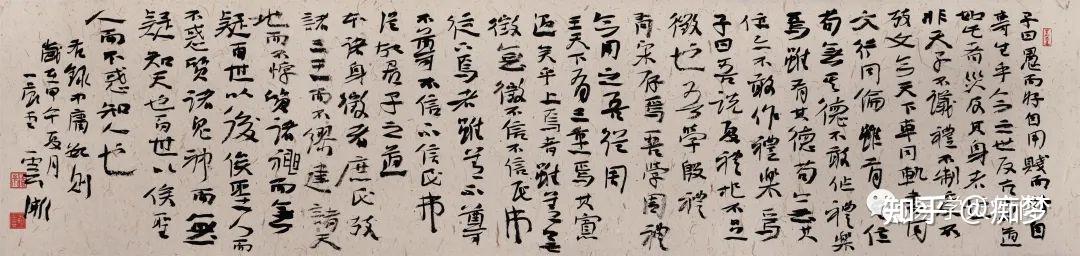 子曰愚而好自用賤而自
專生乎今之世反古之道
如此者災及其身者
非天子不議禮不制度不
考文今天下車同軌書同
文行同倫雖有其位
苟無其德不敢作禮樂
焉雖有其德苟無其
位亦不敢作禮樂焉
子曰吾說夏禮杞不足
徵也吾學殷禮
有宋存焉吾學周禮
今用之吾從周
王天下有三重焉其寡
過矣乎上焉者雖善無
徵無徵不信不信民弗
從下焉者雖善不尊
不尊不信不信民弗
從故君子之道
本諸身徵諸庶民考
諸三王而不繆建諸天
地而不悖質諸鬼神而無
疑百世以後俟聖人而
不惑質諸鬼神而無
疑知天也百世以俟聖
人而不惑知人也
右錄中庸數則
歲在甲午夏月
知乎 @痴梦